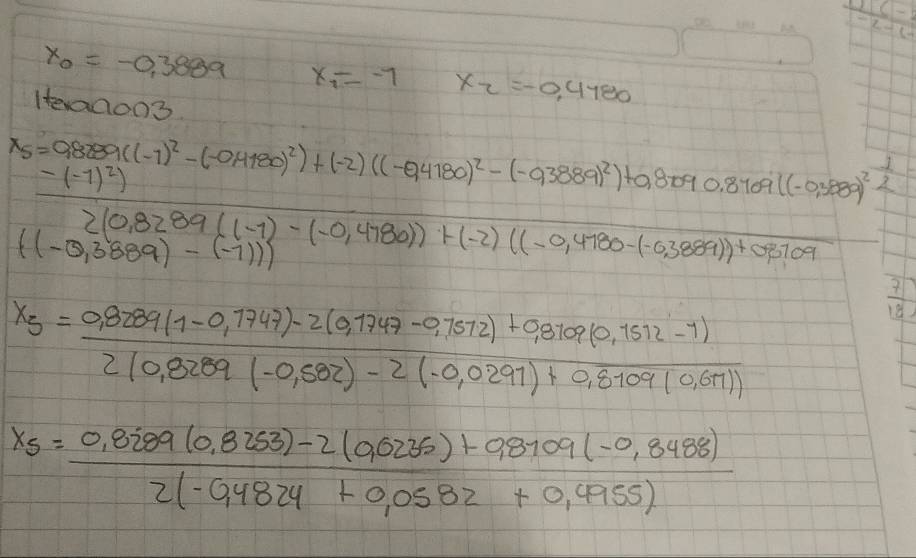 x₀ = -0,3889 x₁ = -1 x₂ = -0,4180
Iteración 3.
x₅ = 0,8289((-1)² - (-0,4180)²) + (-2)((-0,4180)² - (-0,3889)²) + 0,8109 0.8109((-0,3889)²
- (-1)²)
2(0,8289((-1) - (-0,4180)) + (-2)((-0,4180 - (-0,3889)) + 0,8109
((-0,3889) - (-1)))
x₅ = 0,8289(1 - 0,1747) - 2(0,1747 - 0,1512) + 0,8109(0,1512 - 1)
2(0,8289(-0,582) - 2(-0,0291) + 0,8109(0,611))
x₅ = 0,8289(0,8253) - 2(0,0235) + 0,8109(-0,8488)
2(-0,4824 + 0,0582 + 0,4955)
7
18